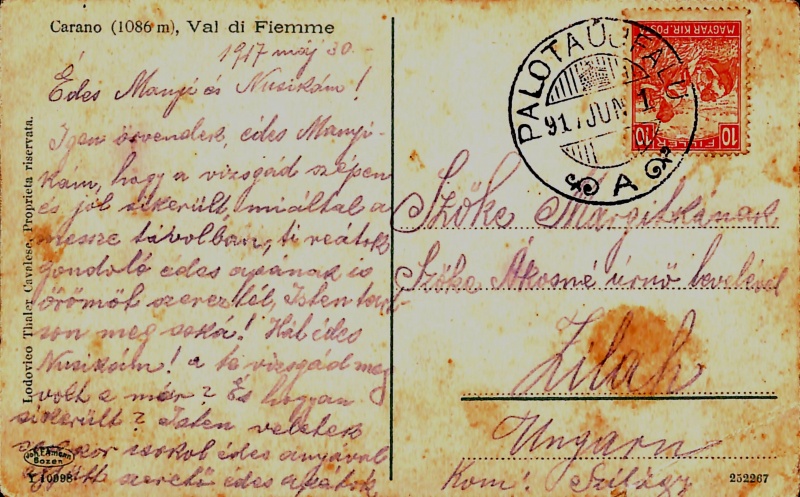 Carano (1086 m), Val di Fiemme
1917 máj 30.
Édes Manyi és Nusikám!
Igen örvendek, édes Manyi-
kám, hogy a vizsgád szépen
és jól sikerült, miáltal a
messze távolban, ti reátok
gondoló édes apának is
örömöt szereztél, Isten tart-
son meg soká! Hát édes
Nusikám! a te vizsgád meg
volt e már? És hogyan
sikerült? Isten veletek
sokszor csokol édes anyával
együtt szerető édes apátok
Lodovico Thaler Cavalese. Proprieta riservata.
Joh. F. Amonn
Bozen
10998
PALOTAÚJFALU
917 JUN 1
A
MAGYAR KIR. POSTA
10 FILLÉR 10
Szőke Margitkának
Szőke Ákosné úrnő levelével
Zilah
Ungarn
Kom: Szilágy
252267